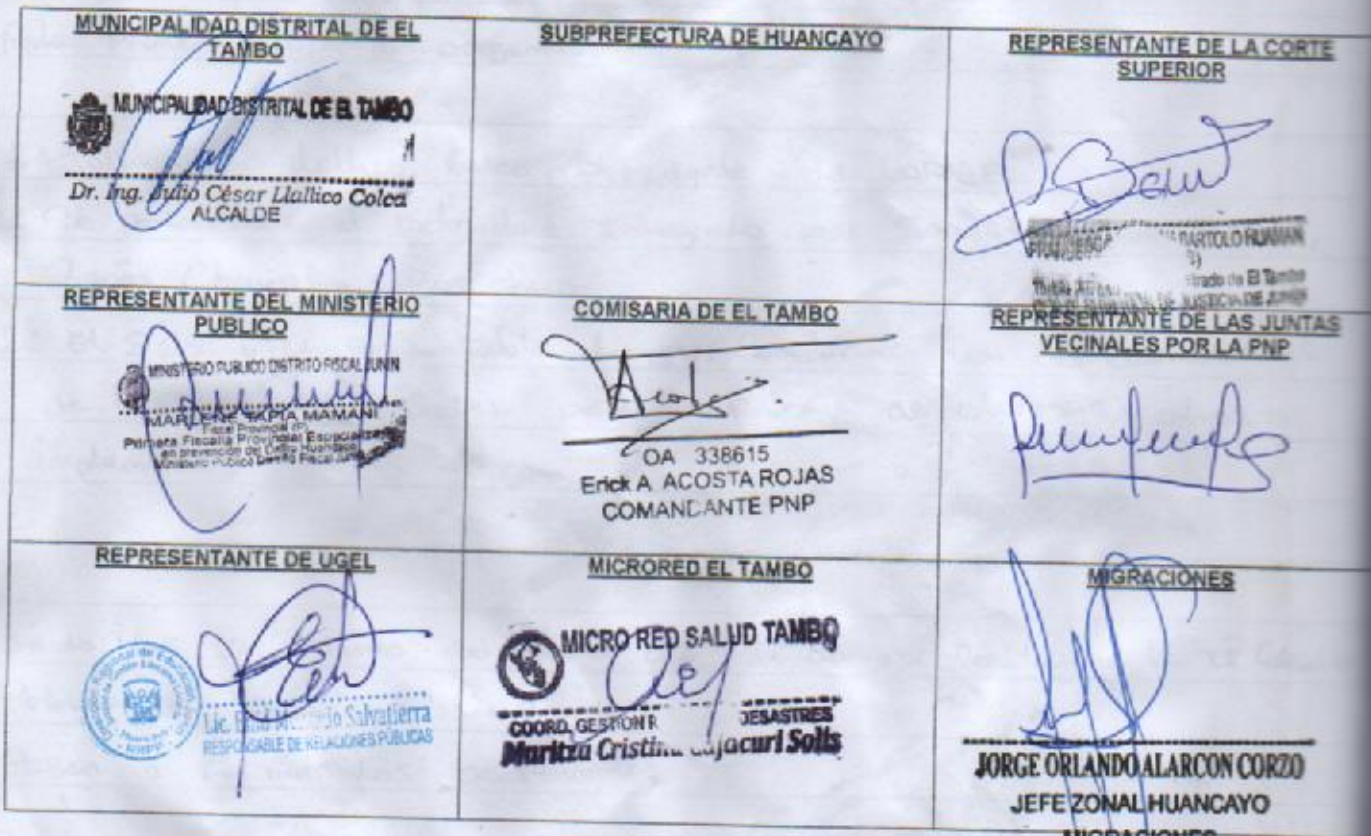 MUNICIPALIDAD DISTRITAL DE EL
TAMBO
MUNICIPALIDAD DISTRITAL DE EL TAMBO
Dr. Ing. Julio César Llallico Colca
ALCALDE
SUBPREFECTURA DE HUANCAYO
REPRESENTANTE DE LA CORTE
SUPERIOR
BARTOLO HUAMAN
de El Tambo
DE JUSTICIA DE JUNIN
REPRESENTANTE DEL MINISTERIO
PUBLICO
MINISTERIO PUBLICO DISTRITO FISCAL JUNIN
TAPIA MAMANI
Fiscal Provincial (P)
Primera Fiscalía Provincial Especializada
en prevención de Delito
Ministerio Público Distrito Fiscal
COMISARIA DE EL TAMBO
OA 338615
Erick A. ACOSTA ROJAS
COMANDANTE PNP
REPRESENTANTE DE LAS JUNTAS
VECINALES POR LA PNP
REPRESENTANTE DE UGEL
Regional de Educación
Lic. Salvatierra
RESPONSABLE DE RELACIONES PÚBLICAS
MICRORED EL TAMBO
MICRO RED SALUD TAMBO
COORD. GESTION R DESASTRES
Maritza Cristina Cajacuri Solis
MIGRACIONES
JORGE ORLANDO ALARCON CORZO
JEFE ZONAL HUANCAYO
MIGRACIONES